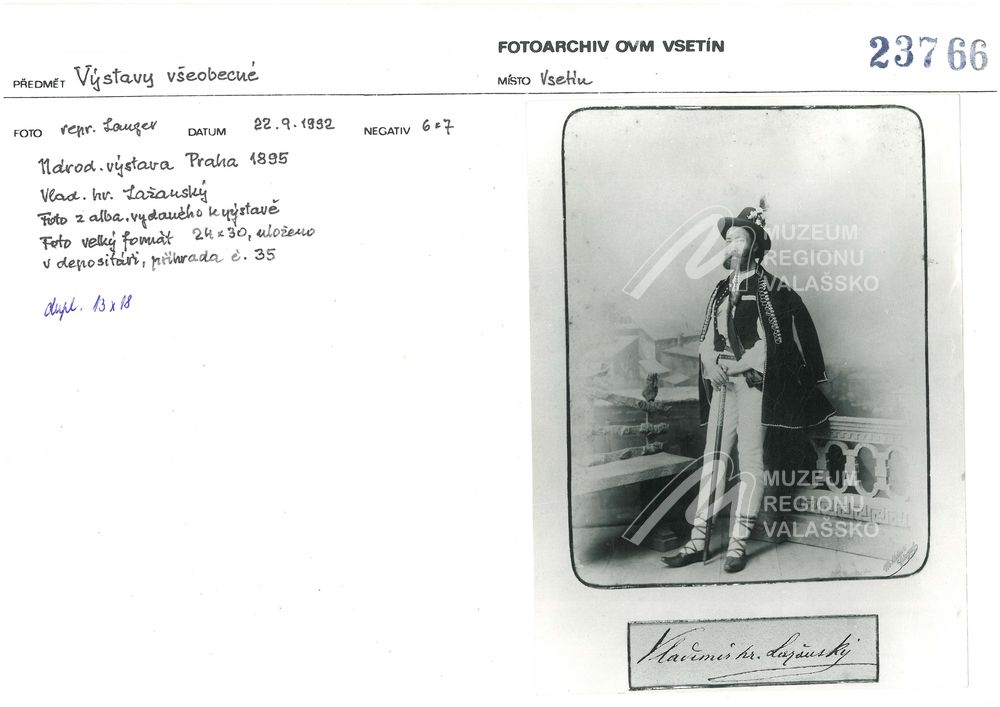 FOTOARCHIV OVM VSETÍN
23766
PŘEDMĚT Výstavy všeobecné
MÍSTO Vsetín
FOTO repr. Langer DATUM 22.9.1992 NEGATIV 6×7
Národ. výstava Praha 1895
Vlad. hr. Lažanský
Foto z alba vydaného k výstavě
Foto velký formát 24×30, uloženo
v depositáři, přihrada č. 35
dupl. 13×18
MUZEUM
REGIONU
VALAŠSKO
MUZEUM
REGIONU
VALAŠSKO
Vladimír hr. Lažanský